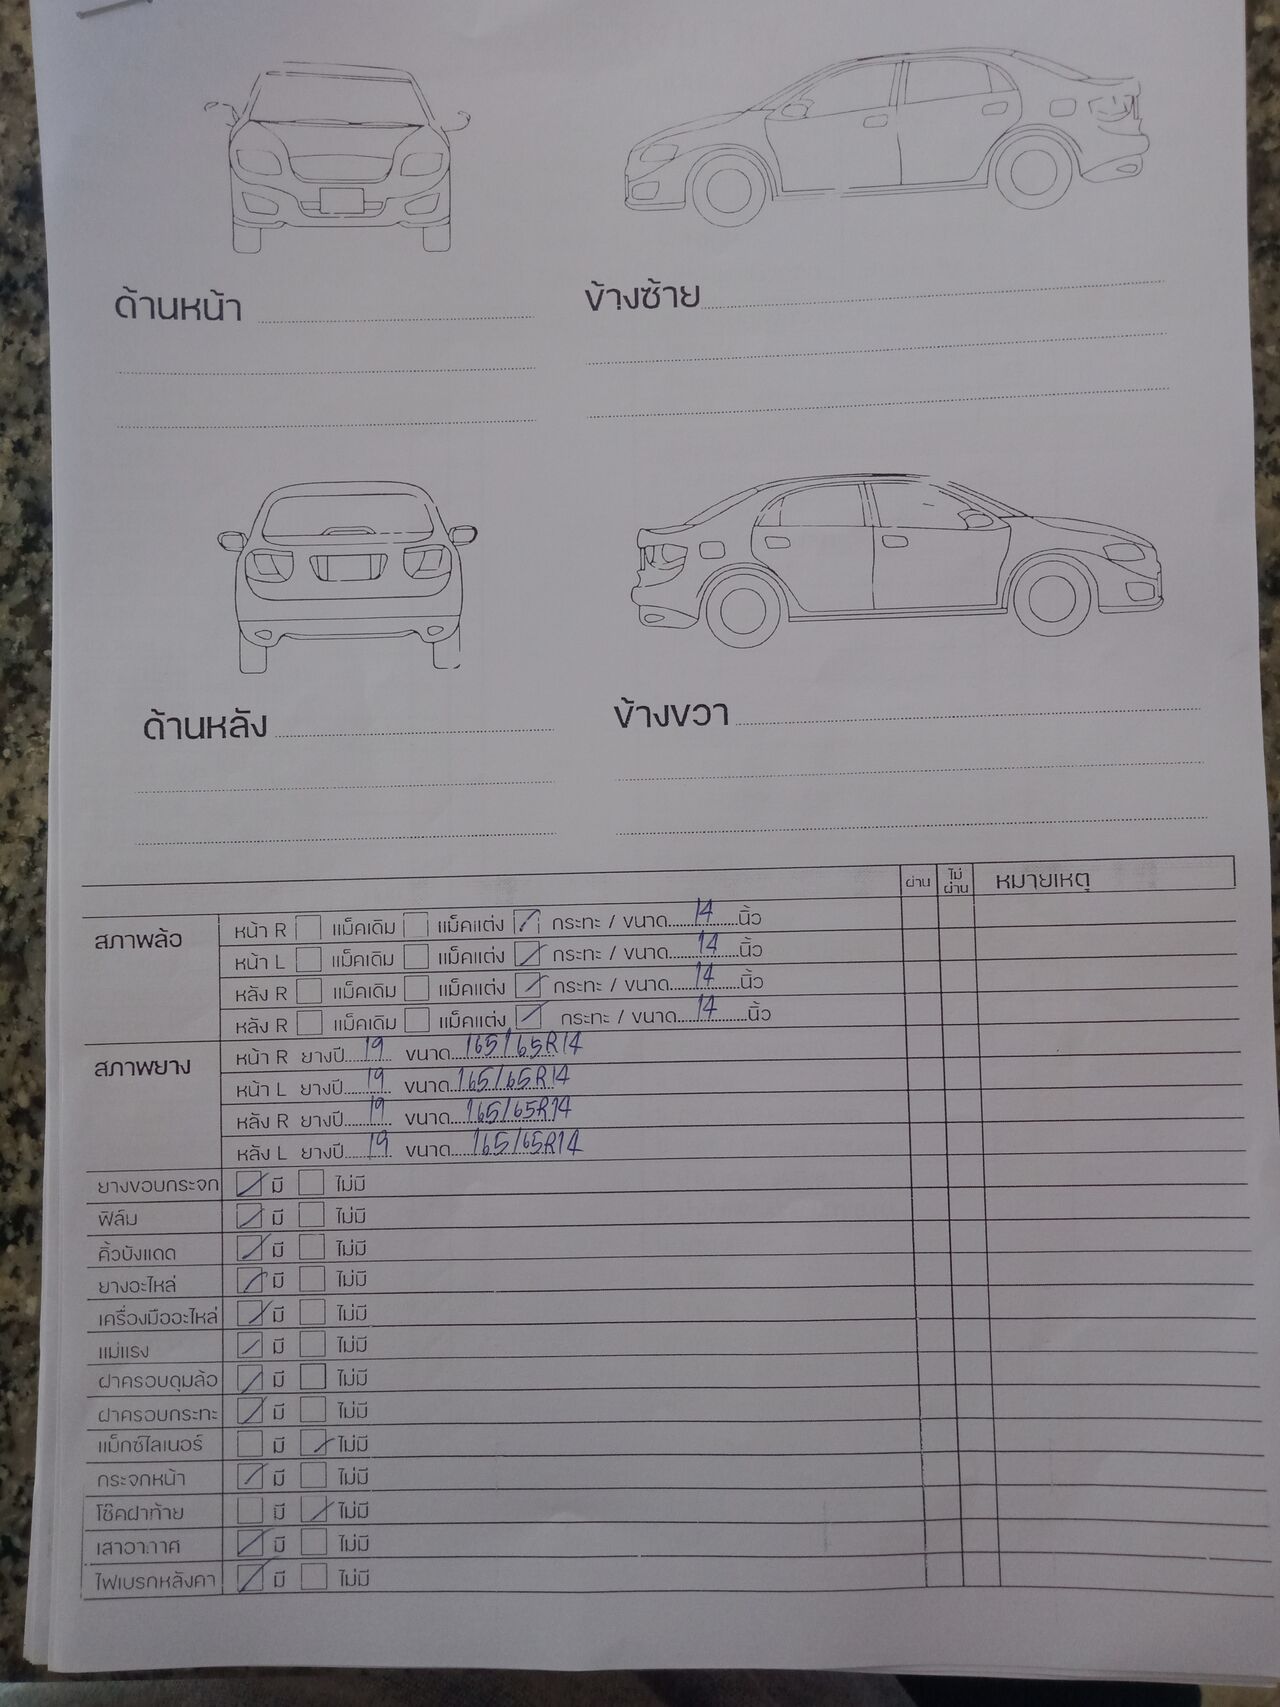 ด้านหน้า
ข้างซ้าย
ด้านหลัง
ข้างขวา
ผ่าน ไม่ผ่าน หมายเหตุ
สภาพล้อ หน้า R แม็คเดิม แม็คแต่ง กระทะ / ขนาด 14 นิ้ว
หน้า L แม็คเดิม แม็คแต่ง กระทะ / ขนาด 14 นิ้ว
หลัง R แม็คเดิม แม็คแต่ง กระทะ / ขนาด 14 นิ้ว
หลัง R แม็คเดิม แม็คแต่ง กระทะ / ขนาด 14 นิ้ว
สภาพยาง หน้า R ยางปี 19 ขนาด 165/65R14
หน้า L ยางปี 19 ขนาด 165/65R14
หลัง R ยางปี 19 ขนาด 165/65R14
หลัง L ยางปี 19 ขนาด 165/65R14
ยางขอบกระจก มี ไม่มี
ฟิล์ม มี ไม่มี
คิ้วบังแดด มี ไม่มี
ยางอะไหล่ มี ไม่มี
เครื่องมืออะไหล่ มี ไม่มี
แม่แรง มี ไม่มี
ฝาครอบดุมล้อ มี ไม่มี
ฝาครอบกระทะ มี ไม่มี
แม็กซ์ไลเนอร์ มี ไม่มี
กระจกหน้า มี ไม่มี
โช๊คฝาท้าย มี ไม่มี
เสาอากาศ มี ไม่มี
ไฟเบรกหลังคา มี ไม่มี